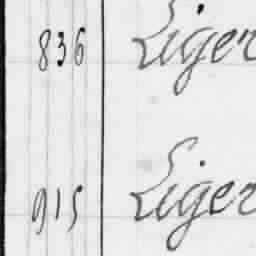 836 Liger
915 Liger